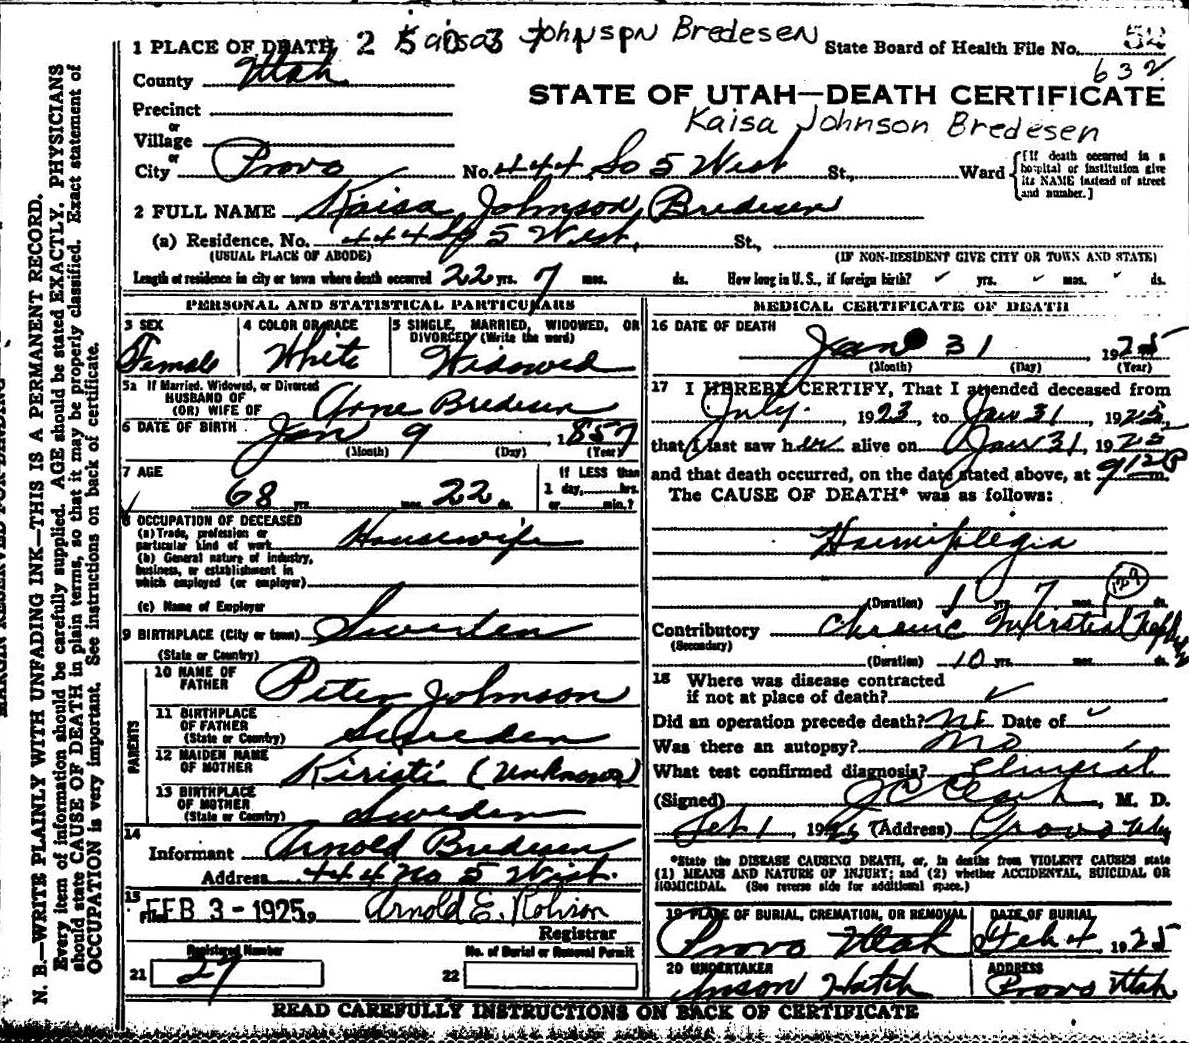 1 PLACE OF DEATH 2 5 0 0 3 Kaisa Johnson Bredesen State Board of Health File No. 52
632
County Utah
STATE OF UTAH—DEATH CERTIFICATE
Kaisa Johnson Bredesen
Precinct
or
Village
or
City Provo No. 444 So 5 West St., Ward [If death occurred in a hospital or institution give its NAME instead of street and number.]
2 FULL NAME Kaisa Johnson Bredesen
(a) Residence. No. 444 So 5 West, St.,
(USUAL PLACE OF ABODE) (IF NON-RESIDENT GIVE CITY OR TOWN AND STATE)
Length of residence in city or town where death occurred 22 yrs. 7 mos. ds. How long in U. S., if foreign birth? yrs. mos. ds.
PERSONAL AND STATISTICAL PARTICULARS
3 SEX
Female
4 COLOR OR RACE
White
5 SINGLE, MARRIED, WIDOWED, OR
DIVORCED (Write the word)
Widowed
5a If Married, Widowed, or Divorced
HUSBAND OF
(OR) WIFE OF Arne Bredesen
6 DATE OF BIRTH Jan 9, 1857
(Month) (Day) (Year)
7 AGE 68 yrs. mos. 22 ds.
If LESS than
1 day, hrs.
or min.?
8 OCCUPATION OF DECEASED
(a) Trade, profession or
particular kind of work Housewife
(b) General nature of industry,
business, or establishment in
which employed (or employer)
(c) Name of Employer
9 BIRTHPLACE (City or town) Sweden
(State or Country)
PARENTS
10 NAME OF
FATHER Peter Johnson
11 BIRTHPLACE
OF FATHER
(State or Country) Sweden
12 MAIDEN NAME
OF MOTHER Kiristi (Unknown)
13 BIRTHPLACE
OF MOTHER
(State or Country) Sweden
14
Informant Arnold Bredesen
Address 444 No 5 West.
15
Filed FEB 3 - 1925, 19 Arnold E. Robison
Registrar
Registered Number
21 27
No. of Burial or Removal Permit
22
MEDICAL CERTIFICATE OF DEATH
16 DATE OF DEATH
Jan 31 1925
(Month) (Day) (Year)
17 I HEREBY CERTIFY, That I attended deceased from
July 1923 to Jan 31, 1925,
that I last saw her alive on Jan 31, 1925
and that death occurred, on the date stated above, at 912 P m.
The CAUSE OF DEATH* was as follows:
Haemiplegia
129
(Duration) 1 yrs. 7 mos. ds.
Contributory Chronic Interstitial Nephritis
(Secondary)
(Duration) 10 yrs. mos. ds.
18 Where was disease contracted
if not at place of death?
Did an operation precede death? No Date of
Was there an autopsy? No
What test confirmed diagnosis? Clinical
(Signed) J C Clark, M. D.
Feb 1, 1925 (Address) Provo Utah
*State the DISEASE CAUSING DEATH, or, in deaths from VIOLENT CAUSES state
(1) MEANS AND NATURE OF INJURY; and (2) whether ACCIDENTAL, SUICIDAL OR
HOMICIDAL. (See reverse side for additional space.)
19 PLACE OF BURIAL, CREMATION, OR REMOVAL
Provo Utah
DATE OF BURIAL
Feb 4 1925
20 UNDERTAKER
Anson Hatch
ADDRESS
Provo Utah
READ CAREFULLY INSTRUCTIONS ON BACK OF CERTIFICATE
N. B.—WRITE PLAINLY WITH UNFADING INK—THIS IS A PERMANENT RECORD.
Every item of information should be carefully supplied. AGE should be stated EXACTLY. PHYSICIANS
should state CAUSE OF DEATH in plain terms, so that it may be properly classified. Exact statement of
OCCUPATION is very important. See instructions on back of certificate.